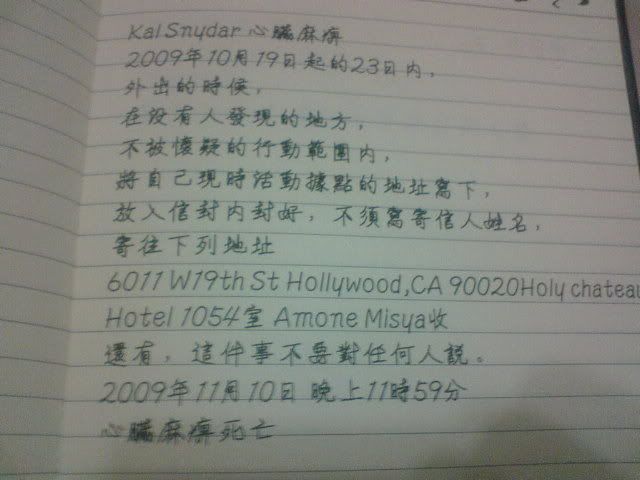 Kal Snydar 心臟麻痹
2009年10月19日起的23日內，
外出的時候，
在没有人發現的地方，
不被懷疑的行動範圍内，
將自己現時活動據點的地址寫下，
放入信封内封好，不須寫寄信人姓名，
寄往下列地址
6011 W19th St Hollywood,CA 90020Holy chateau
Hotel 1054室 Amone Misya收
還有，這件事不要對任何人説。
2009年11月10日 晚上11時59分
心臟麻痹死亡